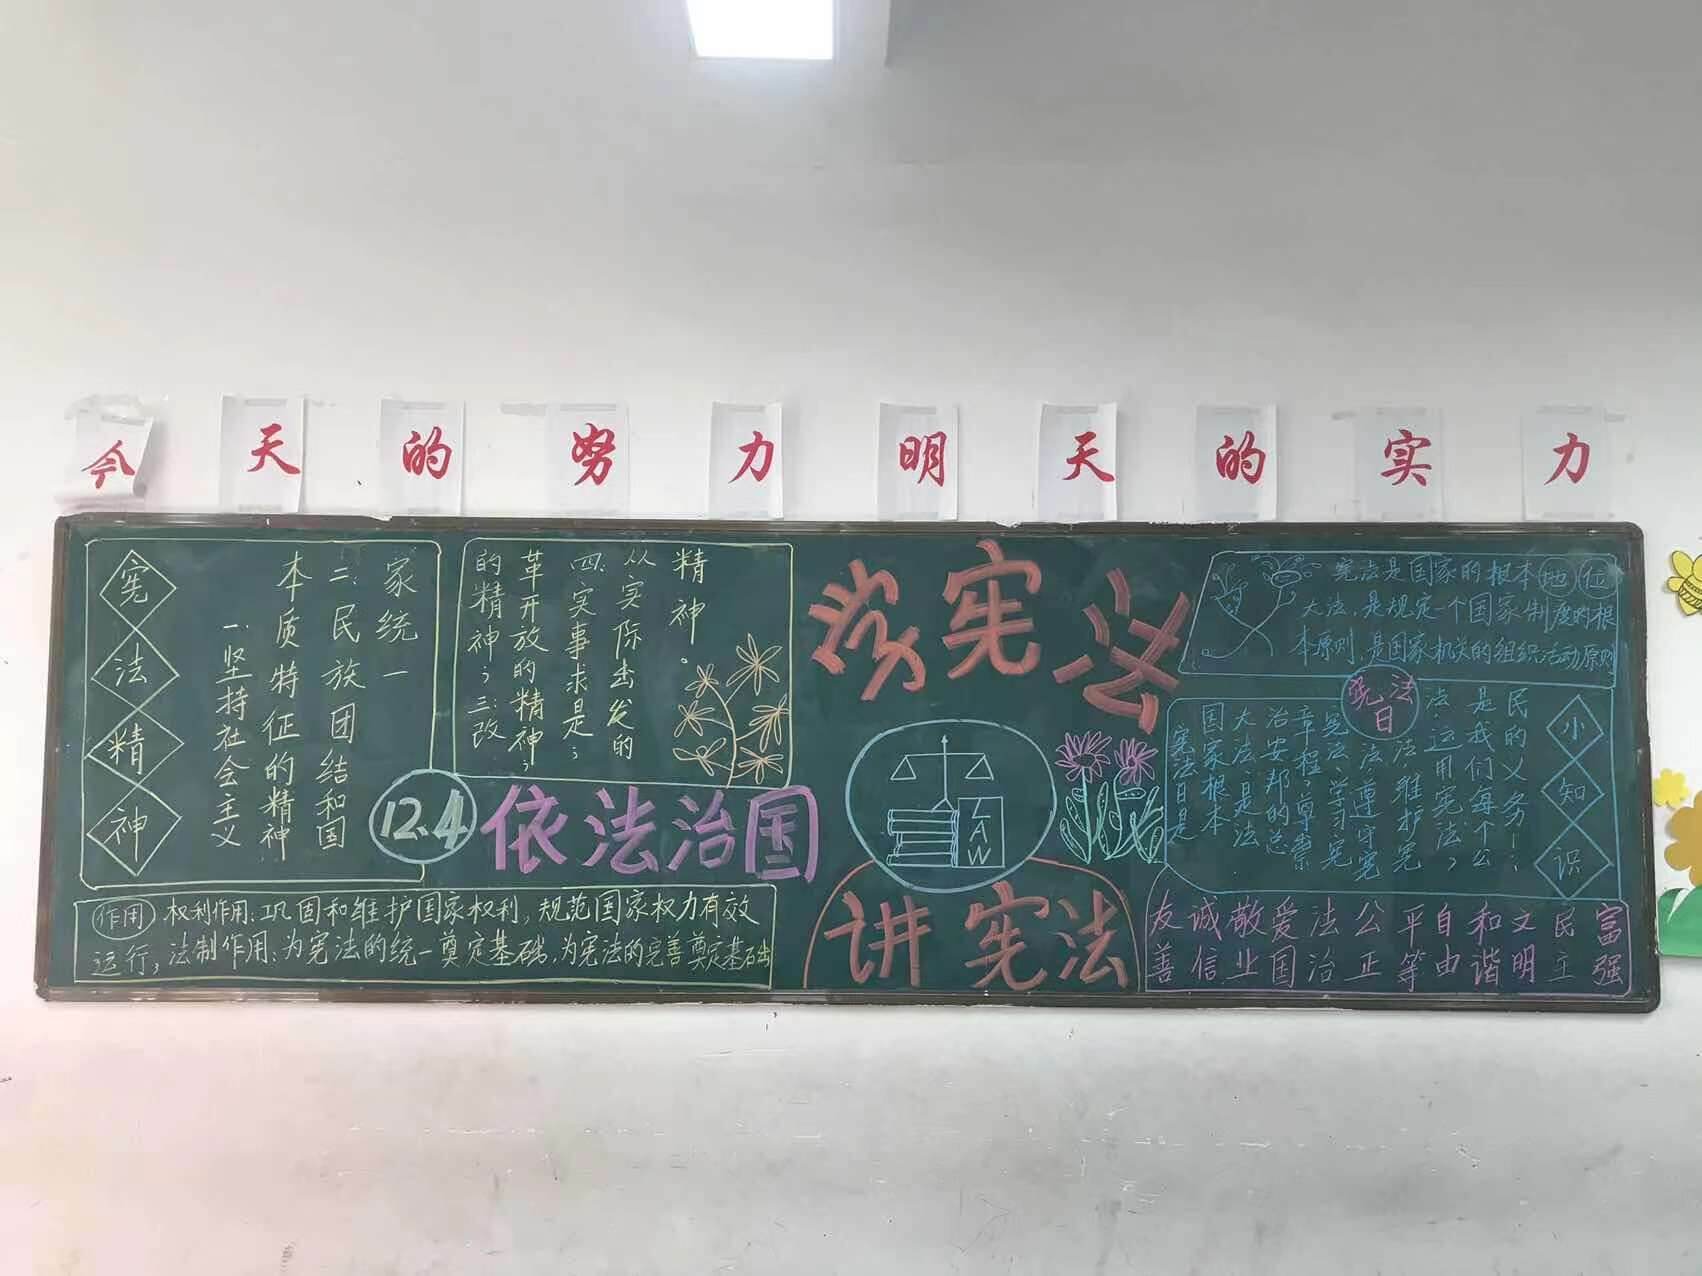 今天的努力明天的实力
宪法精神
一.坚持社会主义
本质特征的精神
二.民族团结和国
家统一
的精神;三.改
革开放的精神;
四.实事求是;
从实际出发的
精神。
12.4
依法治国
作用 权利作用:巩固和维护国家权利,规范国家权力有效
运行,法制作用:为宪法的统一奠定基础,为宪法的完善奠定基础
学宪法
LAW
讲宪法
宪法是国家的根本地位
大法,是规定一个国家制度的根
本原则,是国家机关的组织活动原则
宪法日
宪法日是
国家根本
大法,是法
治安邦的总
章程,尊崇
宪法,学习宪
法,遵守宪
法,维护宪
法,运用宪法,
是我们每个公
民的义务!
小知识
富强
民主
文明
和谐
自由
平等
公正
法治
爱国
敬业
诚信
友善